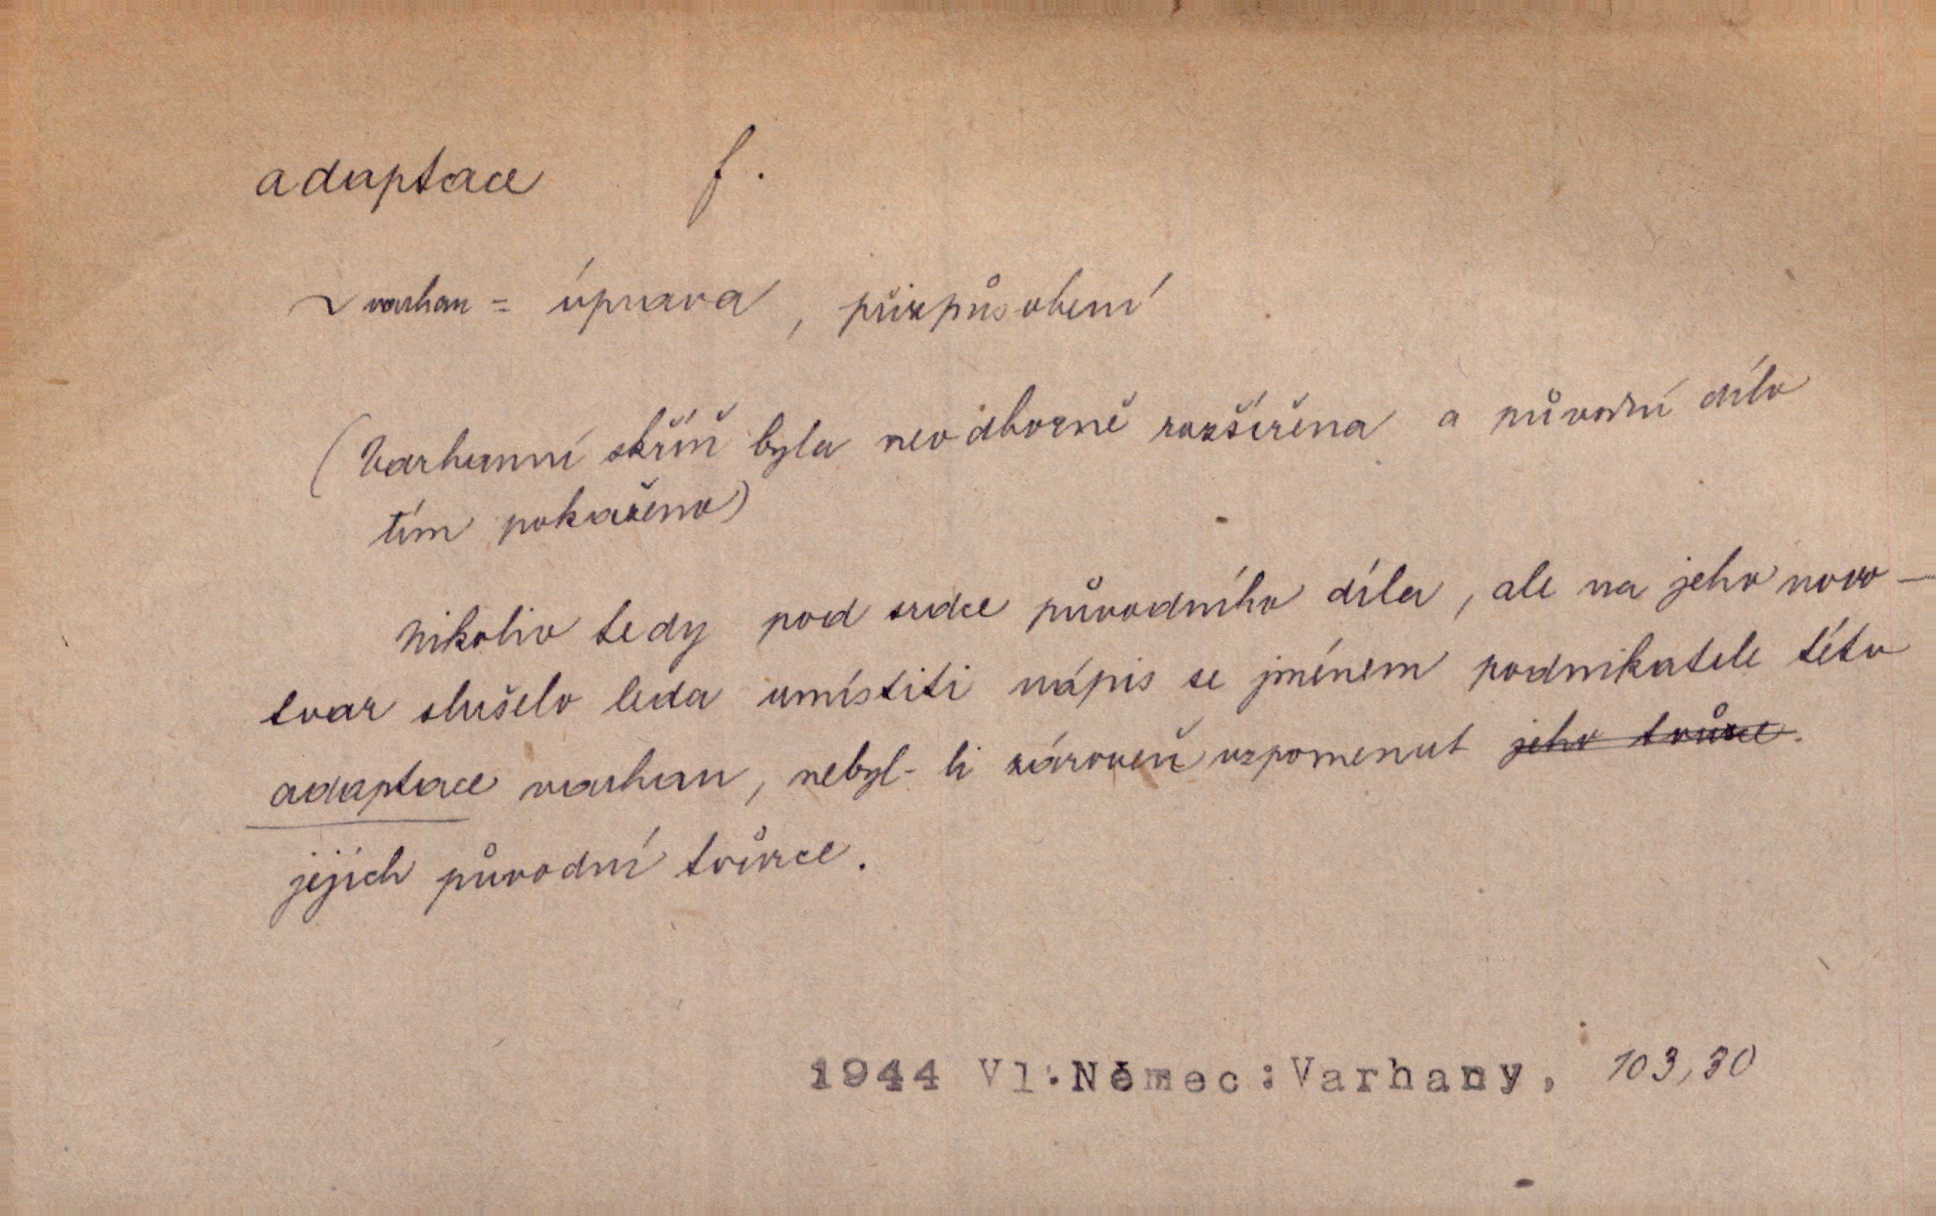 adaptace f.
~ varhan = úprava, přizpůsobení
(Varhanní skříň byla neodborně rozšířena a původní dílo
tím pokaženo)
Nikoliv tedy pod srdce původního díla, ale na jeho novo-
tvar slušelo leda umístiti nápis se jménem podnikatele této
adaptace varhan, nebyl-li zároveň vzpomenut jeho tvůrce.
jejich původní tvůrce.
1944 Vl.Němec:Varhany, 103,30